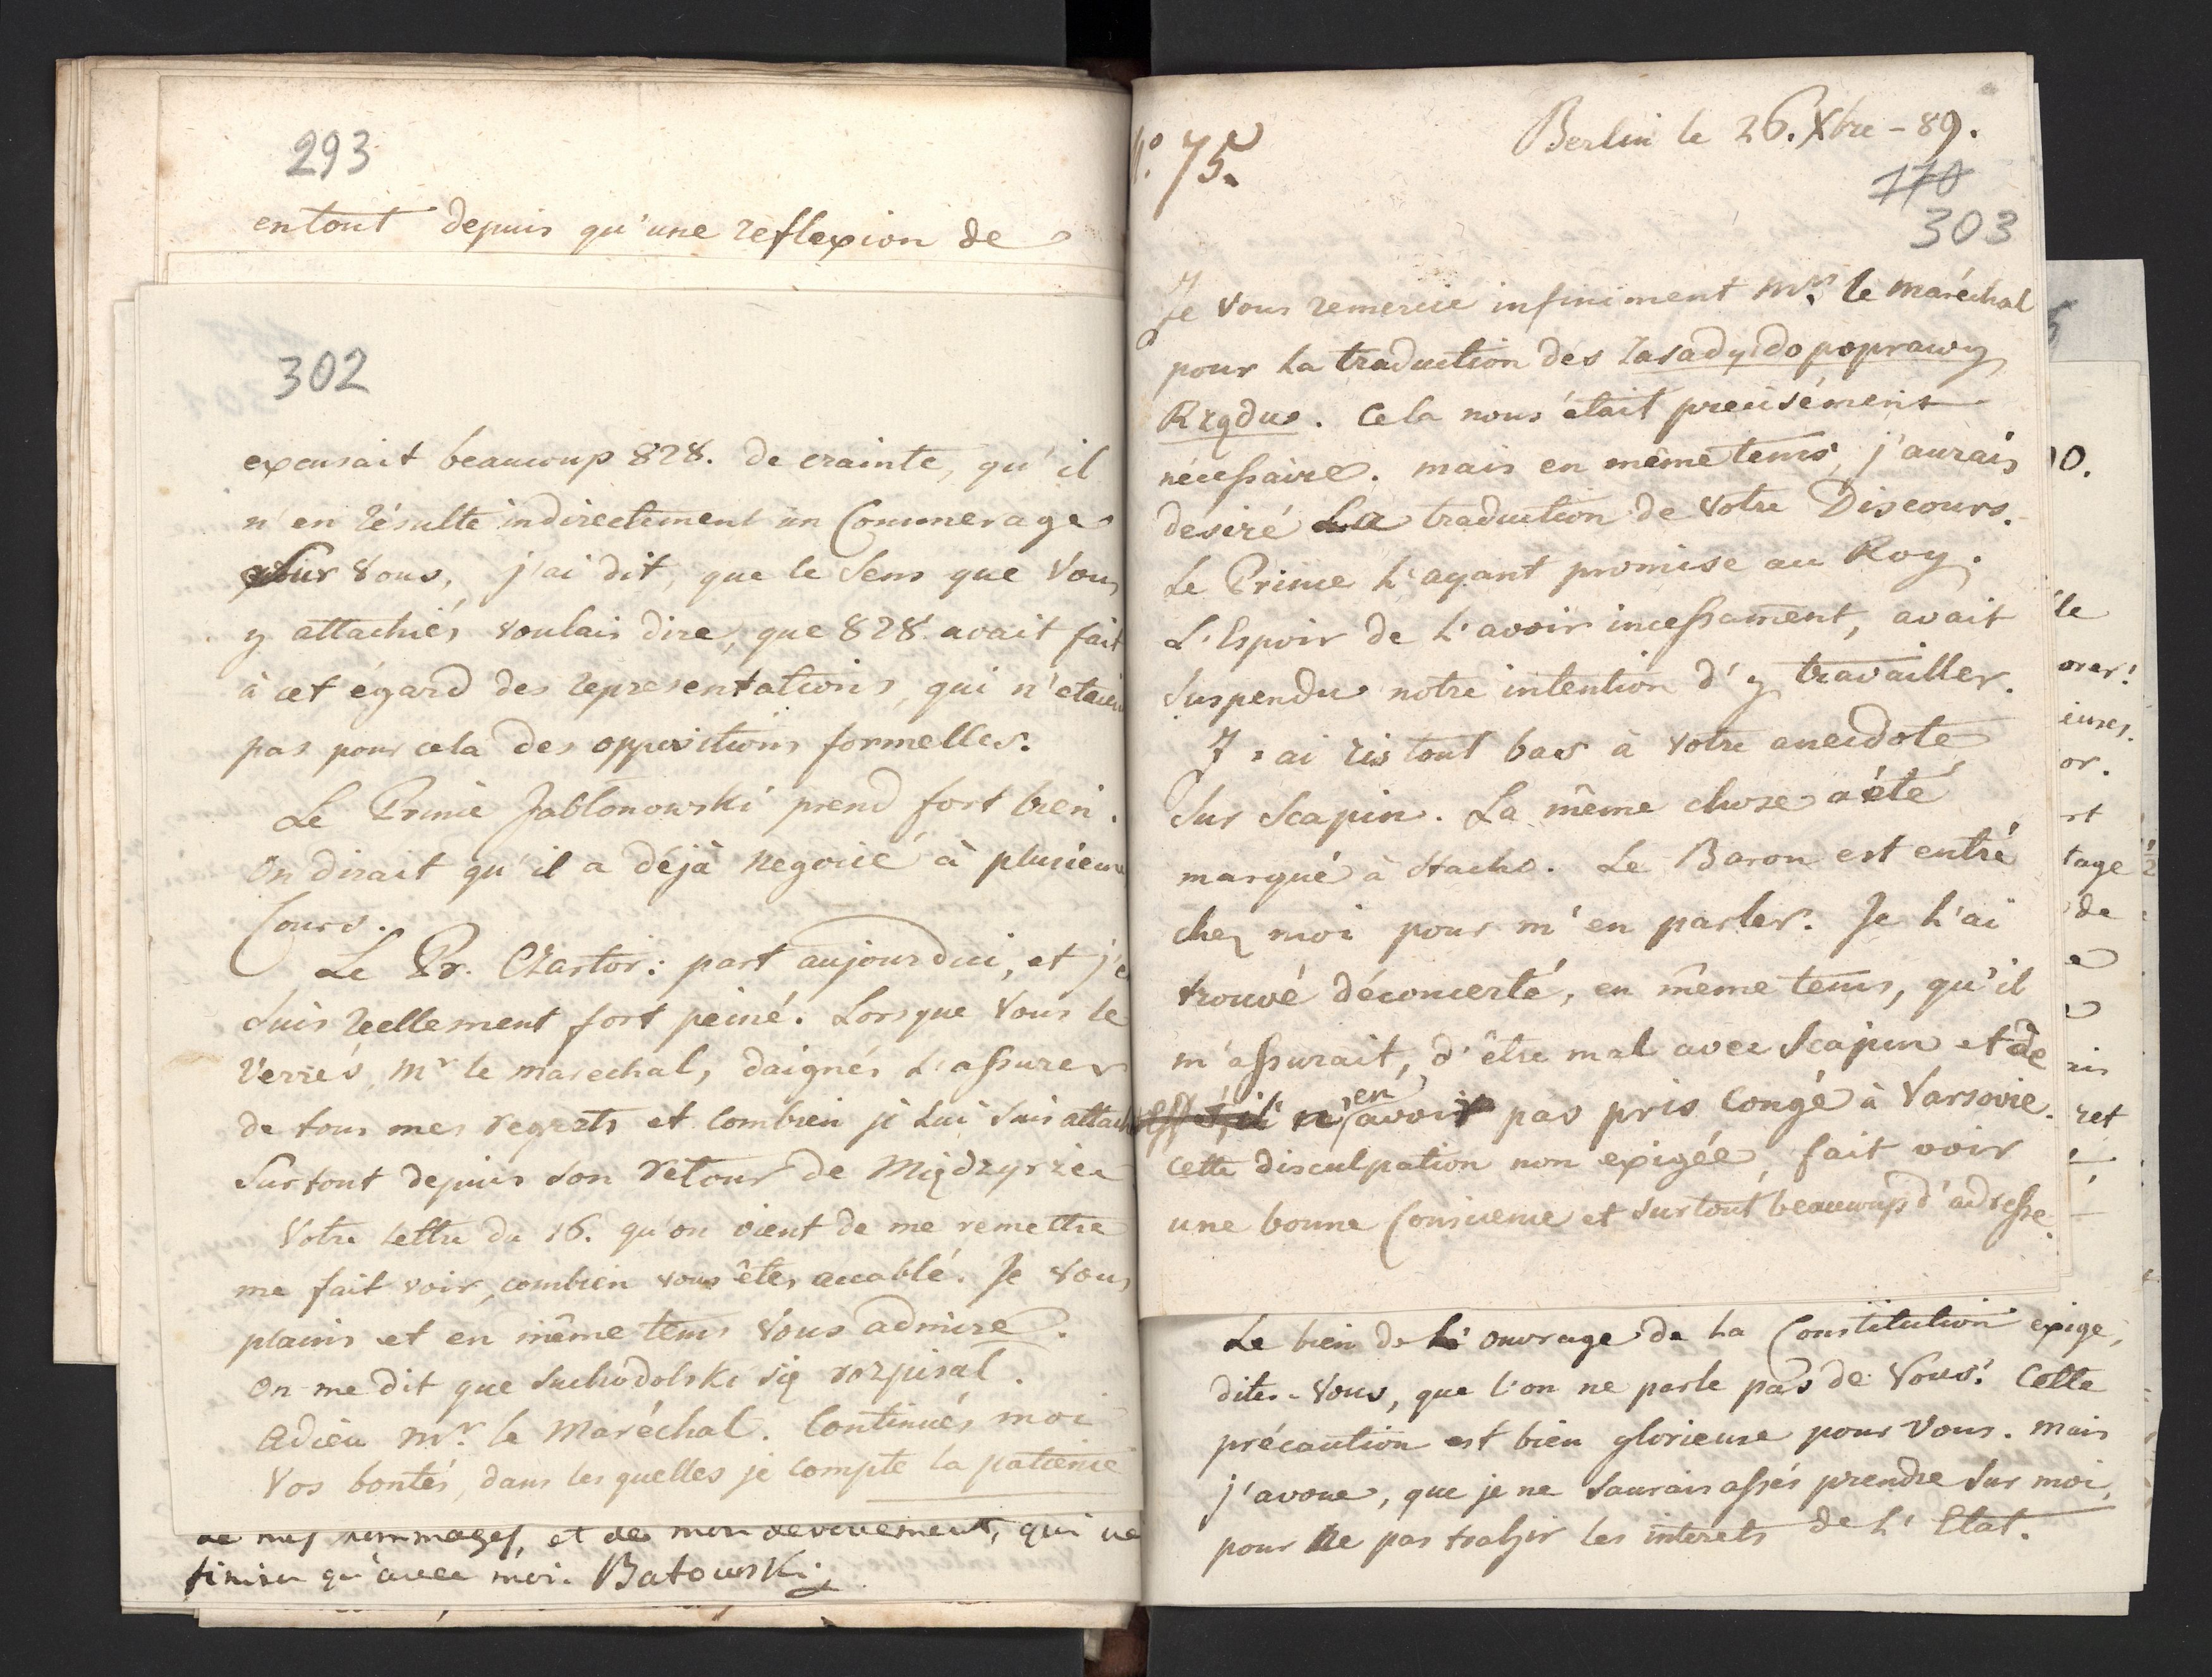 293
en tout depuis qu'une reflexion de
302
excusait beaucoup 828. de crainte, qu'il
n'en résulte indirectement un Commerage
pour vous, j'ai dit, que le sens que vous
y attachiés voulais dire, que 828. avait fait
à cet égard des representations, qui n'etaien
pas pour cela des oppositions formelles.
Le Prince Jablonowski prend fort bien.
On dirait qu'il a déjà negocié à plusieur
Cours.
Le Pr. Czartor: part aujourdui, et j'e
suis réellement fort peiné. Lorsque vous le
verrés, Mr le marechal, daignés l'assurer
de tous mes regrets et combien je lui suis attach
surtout depuis son retour de Międzyrzec
Votre lettre du 16. qu'on vient de me remettre
me fait voir, combien vous êtes accablé. Je vous
plains et en même tems vous admire.
On me dit que Suchodolski się rozpisał.
Adieu Mr. le Maréchal. Continués moi
vos bontés, dans les quelles je compte la patience
de mes hommages, et de mon devouement, qui ne
finira qu'avec moi. Batowski
N.º 75.
Berlin le 26. Xbre - 89.
170
303
Je vous remercie infiniment Mr. le Maréchal
pour la traduction des Zasady do poprawy
Rządu. Cela nous était precisément
nécessaire. mais en même tems, j'aurais
desiré la traduction de votre Discours.
Le Prince l'ayant promise au Roy.
L'Espoir de l'avoir incessament, avait
suspendu notre intention d'y travailler.
J'ai ris tout bas à votre anecdote
sur Scapin. La même chose a été
marqué à Stacho. Le Baron est entré
chez moi pour m'en parler. Je l'ai
trouvé déconcerté, en même tems, qu'il
m'assurait, d'être mal avec Scapin et de
n'en avoir pas pris Congé à Varsovie.
Cette disculpation non exigée, fait voir
une bonne Conscience et surtout beaucoup d'adresse.
Le bien de l'ouvrage de la Constitution exige,
dites-vous, que l'on ne parle pas de vous! Cette
précaution est bien glorieuse pour vous. mais
j'avoue, que je ne saurais assés prendre sur moi,
pour ne pas trahir les interets de l'Etat.
0.
le
orer!
ieuses.
or.
rt
tage
de
ais
ret